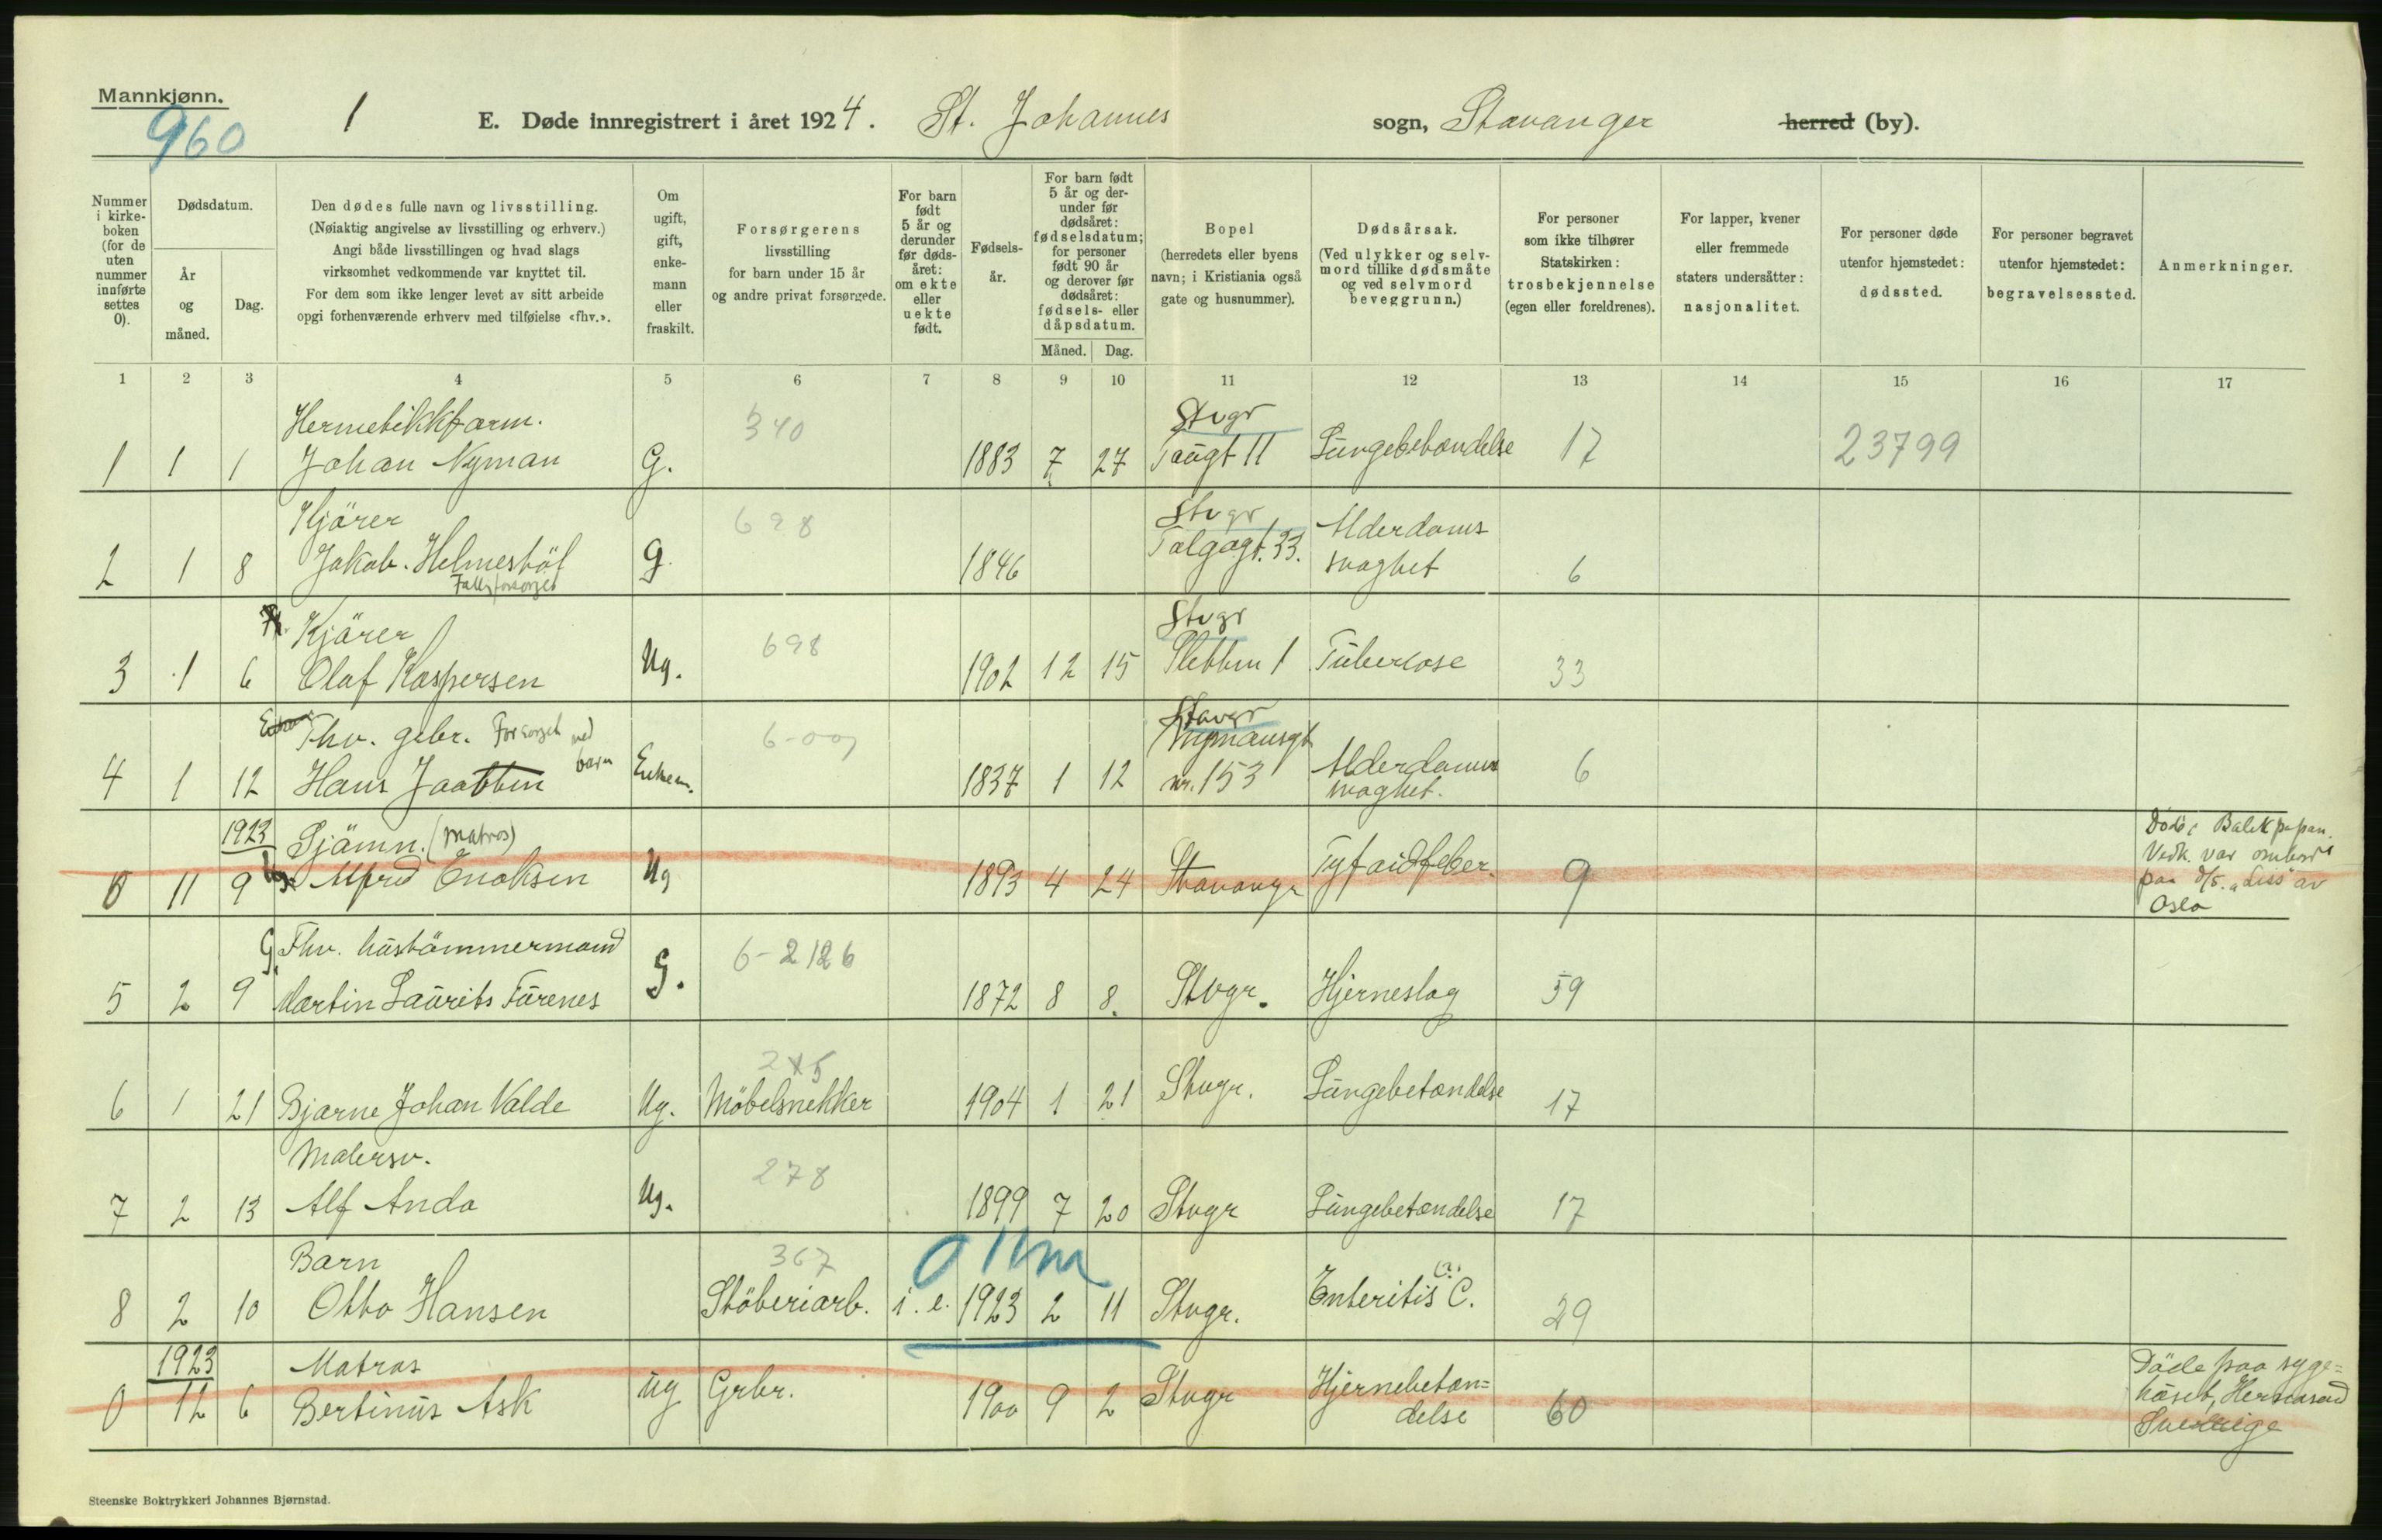 Mannkjønn.
960
1
E. Døde innregistrert i året 1924. St. Johannes sogn, Stavanger herred (by).
Nummer i kirke-boken (for de uten nummer innførte settes 0).
Dødsdatum.
År og måned.
Dag.
Den dødes fulle navn og livsstilling.
(Nøiaktig angivelse av livsstilling og erhverv.)
Angi både livsstillingen og hvad slags
virksomhet vedkommende var knyttet til.
For dem som ikke lenger levet av sitt arbeide
opgi forhenværende erhverv med tilføielse «fhv.».
Om ugift, gift, enke-mann eller fraskilt.
Forsørgerens
livsstilling
for barn under 15 år
og andre privat forsørgede.
For barn født 5 år og derunder før døds-året: om ekte eller uekte født.
Fødsels-år.
For barn født 5 år og der-under før dødsåret: fødselsdatum; for personer født 90 år og derover før dødsåret: fødsels- eller dåpsdatum.
Måned.
Dag.
Bopel
(herredets eller byens
navn; i Kristiania også
gate og husnummer).
Dødsårsak.
(Ved ulykker og selv-
mord tillike dødsmåte
og ved selvmord
beveggrunn.)
For personer
som ikke tilhører
Statskirken:
trosbekjennelse
(egen eller foreldrenes).
For lapper, kvener
eller fremmede
staters undersåtter:
nasjonalitet.
For personer døde
utenfor hjemstedet:
dødssted.
For personer begravet
utenfor hjemstedet:
begravelsessted.
Anmerkninger.
1 2 3 4 5 6 7 8 9 10 11 12 13 14 15 16 17
Hermetikkfarm. 340 Stvgr
1 1 1 Johan Nyman G. 1883 7 27 Taugt 11 Lungebetændelse 17 23799
Kjörer 698 Stvgr Alderdoms
2 1 8 Jakob. Helmestöl G 1846 Talgagt. 33. svaghet 6
Kjörer 698 Stvgr
3 1 6 Olaf Kaspersen Ug. 1902 12 15 Sletten 1 Tuberkose 33
Fhv. gbr. Forsorget ved barn 6-00 Stavgr
4 1 12 Hans Jaatten Enkem. 1837 1 12 nr. 153 Alderdoms svaghet. 6
1923 Sjömn. (Matros)
0 11 9 Alfred Enoksen Ug 1893 4 24 Stavanger Tyfoidfeber. 9
Död i Balikpapan.
Vedk. var ombord
paa D/S. "Liss" av
Oslo
Fhv. hüstömmermand 6-2126
5 2 9 Martin Laurits Türenes G. 1872 8 8. Stvgr. Hjerneslag 59
245
6 1 21 Bjarne Johan Valde Ug. Möbelsnekker 1904 1 21 Stvgr. Lungebetændelse 17
Malersv. 278
7 2 13 Alf Anda Ug. 1899 7 20 Stvgr Lungebetændelse 17
Barn 367 0 11m
8 2 10 Otto Hansen Stöberiarb. i. e. 1923 2 11 Stvgr. Enteritis C. 29
1923 Matros
0 12 6 Bertinus Ask ug Grbr. 1900 9 2 Stvgr Hjernebetæn=
delse 60
Döde paa syge=
huset, Hernosand
Sverrige
Steenske Boktrykkeri Johannes Bjørnstad.